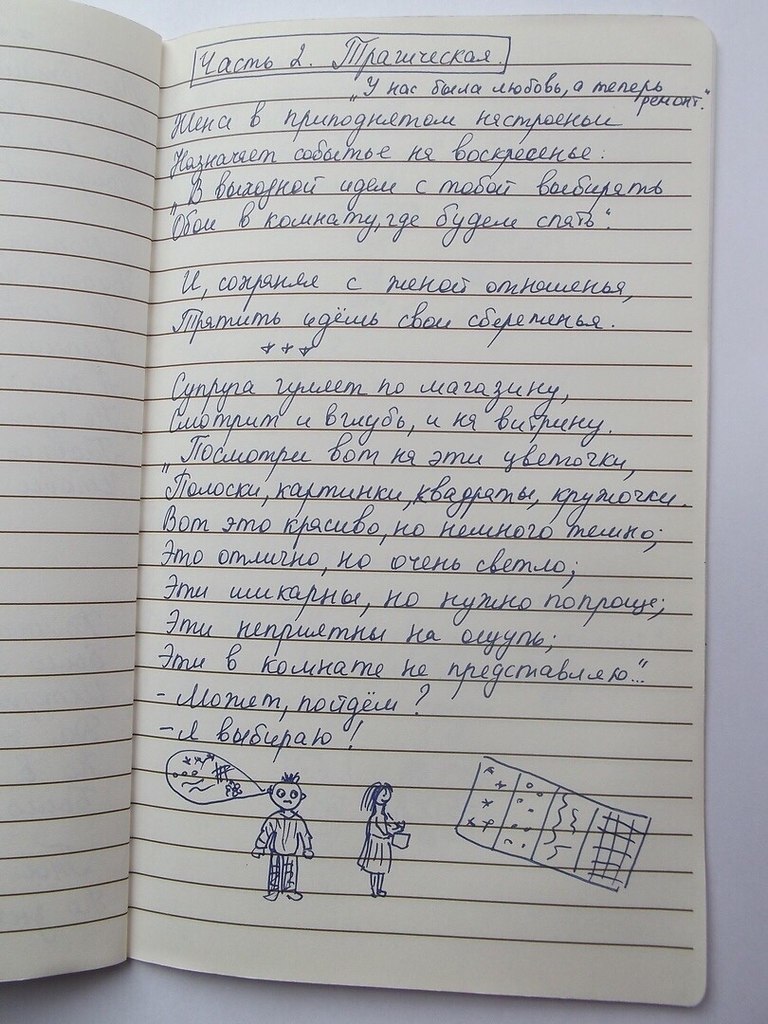 Часть 2. Трагическая.
"У нас была любовь, а теперь
ремонт."
Жена в приподнятом настроеньи
Назначает событье на воскресенье:
"В выходной идем с тобой выбирать
Обои в комнату, где будем спать".
И, сохраняя с женой отношенья,
Тратить идёшь свои сбереженья.
***
Супруга гуляет по магазину,
Смотрит и вглубь, и на витрину.
"Посмотри вот на эти цветочки,
Полоски, картинки, квадраты, кружочки.
Вот это красиво, но немного темно;
Это отлично, но очень светло;
Эти шикарны, но нужно попроще;
Эти неприятны на ощупь;
Эти в комнате не представляю..."
- Может, пойдём?
- Я выбираю!